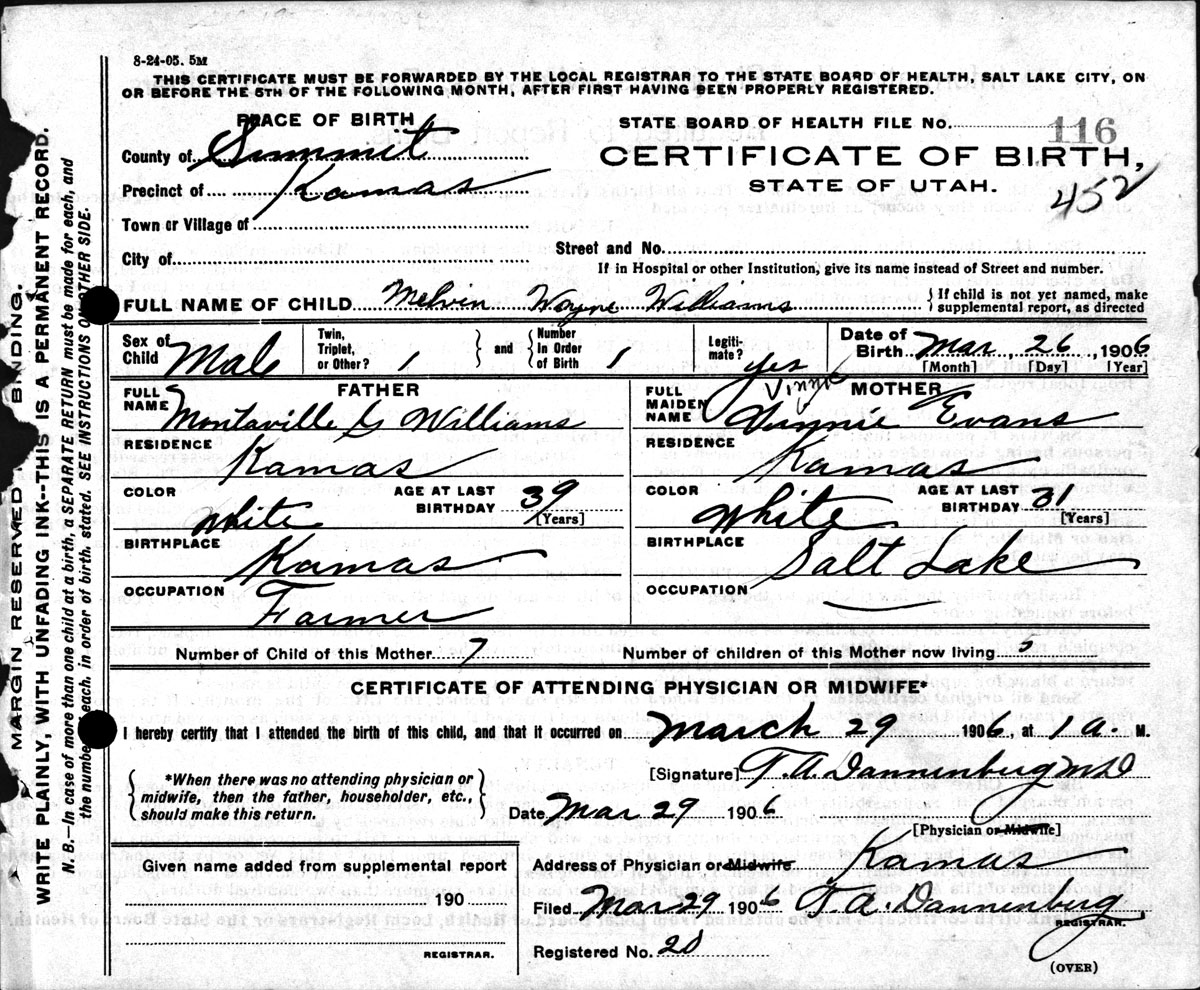 8-24-05. 5M
THIS CERTIFICATE MUST BE FORWARDED BY THE LOCAL REGISTRAR TO THE STATE BOARD OF HEALTH, SALT LAKE CITY, ON
OR BEFORE THE 5TH OF THE FOLLOWING MONTH, AFTER FIRST HAVING BEEN PROPERLY REGISTERED.
PLACE OF BIRTH
STATE BOARD OF HEALTH FILE NO. 116
County of Summit
CERTIFICATE OF BIRTH,
Precinct of Kamas
STATE OF UTAH.
452
Town or Village of
City of
Street and No.
If in Hospital or other Institution, give its name instead of Street and number.
FULL NAME OF CHILD Melvin Wayne Williams
{ If child is not yet named, make
supplemental report, as directed
Sex of Child Male
Twin, Triplet, or Other? 1 } and { Number In Order of Birth 1
Legiti-mate? yes
Date of Birth Mar 26, 1906
[Month] [Day] [Year]
FATHER
FULL NAME Montaville G Williams
RESIDENCE Kamas
COLOR White
AGE AT LAST BIRTHDAY 39
[Years]
BIRTHPLACE Kamas
OCCUPATION Farmer
MOTHER
FULL MAIDEN NAME Vinnie Evans
RESIDENCE Kamas
COLOR White
AGE AT LAST BIRTHDAY 31
[Years]
BIRTHPLACE Salt Lake
OCCUPATION
Number of Child of this Mother 7 Number of children of this Mother now living 5
CERTIFICATE OF ATTENDING PHYSICIAN OR MIDWIFE*
I hereby certify that I attended the birth of this child, and that it occurred on March 29 1906, at 1 a. M.
{ *When there was no attending physician or
midwife, then the father, householder, etc.,
should make this return. }
[Signature] T. A. Dannenberg MD
Date Mar 29 1906
[Physician or Midwife]
Given name added from supplemental report
190
REGISTRAR.
Address of Physician or Midwife Kamas
Filed Mar 29 1906 T. A. Dannenberg
REGISTRAR.
Registered No. 20
(OVER)
MARGIN RESERVED FOR BINDING.
WRITE PLAINLY, WITH UNFADING INK--THIS IS A PERMANENT RECORD.
N. B.—In case of more than one child at a birth, a SEPARATE RETURN must be made for each, and
the number of each, in order of birth, stated. SEE INSTRUCTIONS ON OTHER SIDE.